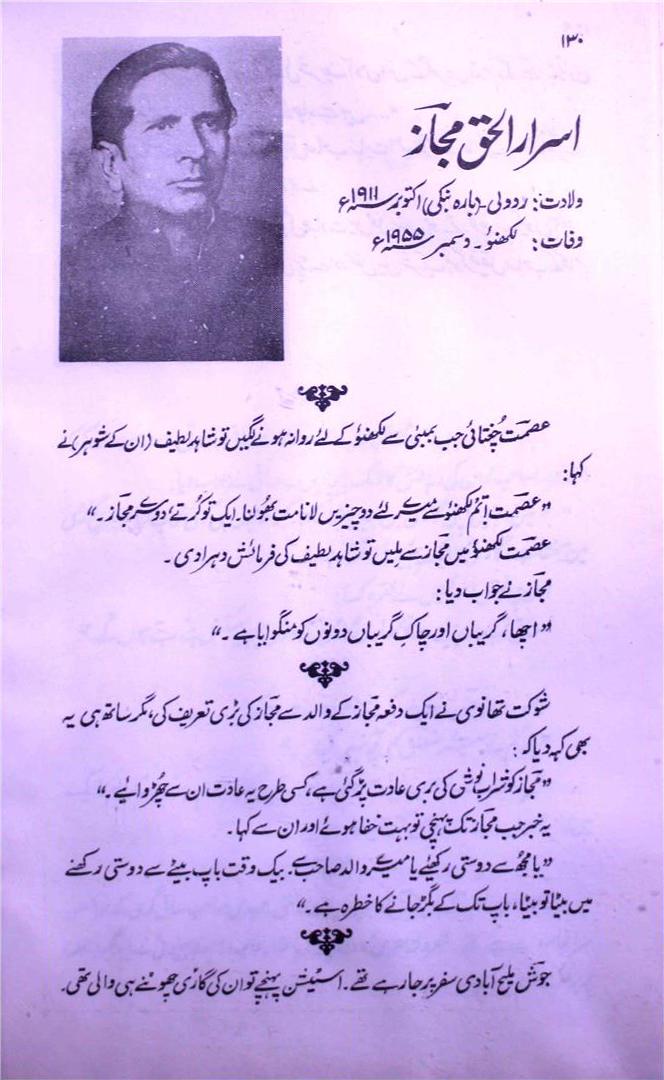 ۱۳۰
اسرار الحق مجاز
ولادت: ردولی-(بارہ بنکی) اکتوبر سنہ ۱۹۱۱ء
وفات: لکھنؤ۔ دسمبر سنہ ۱۹۵۵ء
عصمت چغتائی جب بمبئی سے لکھنؤ کے لئے روانہ ہونے لگیں تو شاہد لطیف (ان کے شوہر) نے
کہا:
"عصمت! تم لکھنؤ سے میرے لئے دو چیزیں لانا مت بھولنا۔ ایک تو کرتے، دوسرے مجاز۔"
عصمت لکھنؤ میں مجاز سے ملیں تو شاہد لطیف کی فرمائش دہرا دی۔
مجاز نے جواب دیا:
"اچھا، گریباں اور چاکِ گریباں دونوں کو منگوایا ہے۔"
شوکت تھانوی نے ایک دفعہ مجاز کے والد سے مجاز کی بڑی تعریف کی، مگر ساتھ ہی یہ
بھی کہہ دیا کہ:
"مجاز کو شراب نوشی کی بری عادت پڑ گئی ہے، کسی طرح یہ عادت ان سے چھڑوائیے۔"
یہ خبر جب مجاز تک پہنچی تو بہت خفا ہوئے اور ان سے کہا۔
"یا مجھ سے دوستی رکھئے یا میرے والد صاحب سے۔ بیک وقت باپ بیٹے سے دوستی رکھنے
میں بیٹا تو بیٹا، باپ تک کے بگڑ جانے کا خطرہ ہے۔"
جوش ملیح آبادی سفر پر جا رہے تھے۔ اسٹیشن پہنچے تو ان کی گاڑی چھوٹنے ہی والی تھی۔